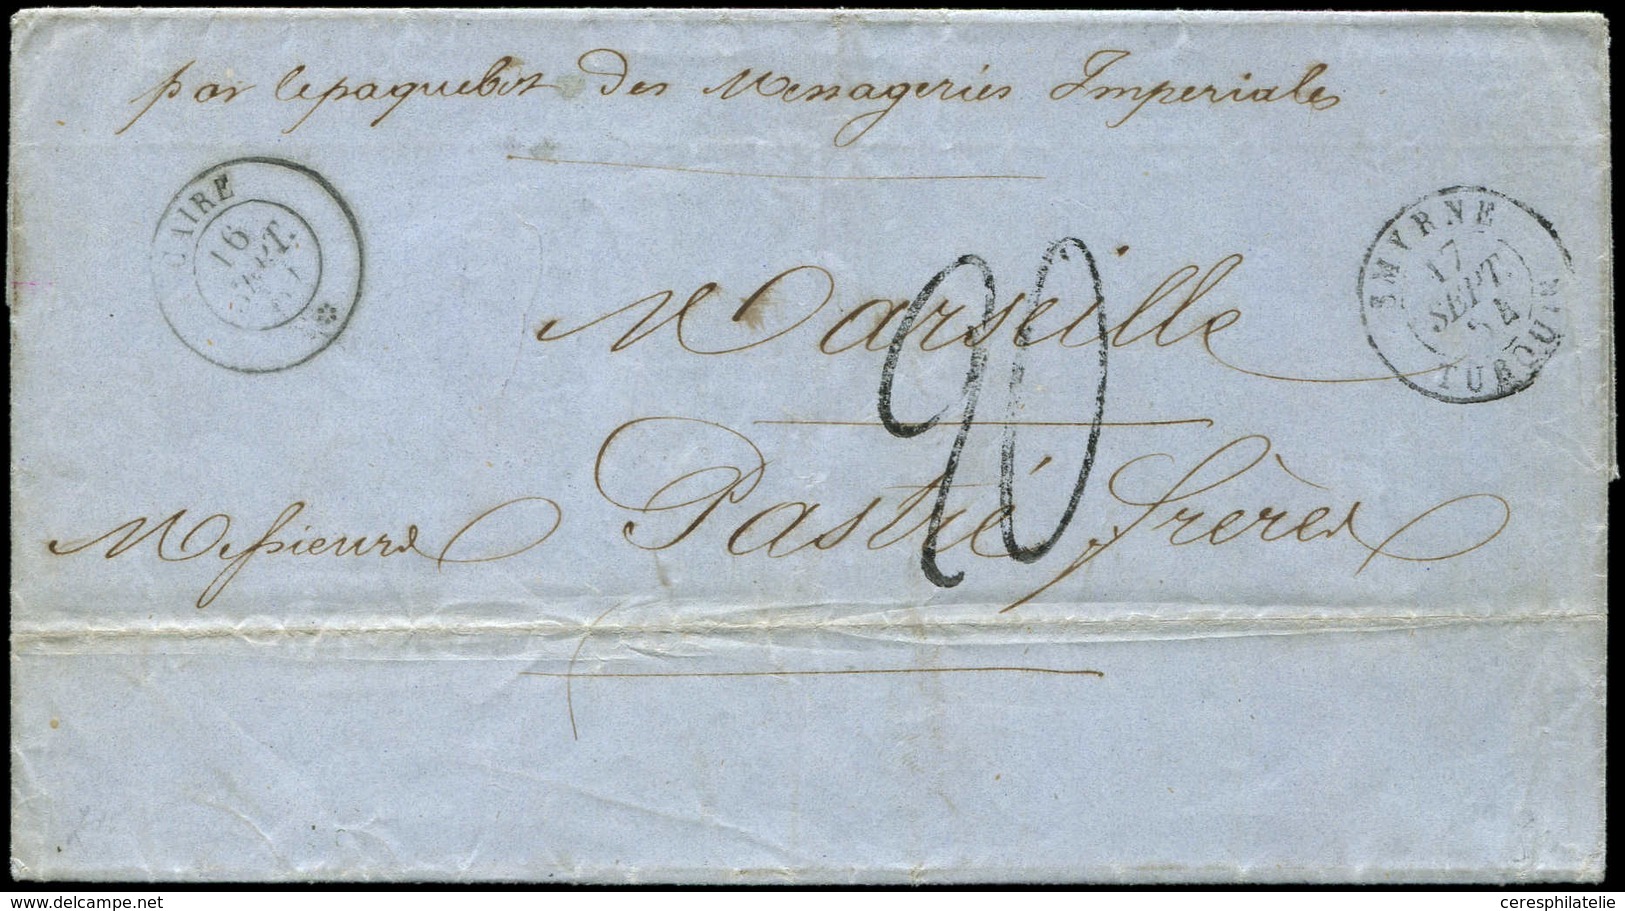 par le paquebot des Messageries Imperiales
CAIRE
16
SEPT.
SMYRNE
17
SEPT.
54
TURQUIE
20
Marseille
Messieurs Pastré frères
delcampe.net
ceresphilatelie